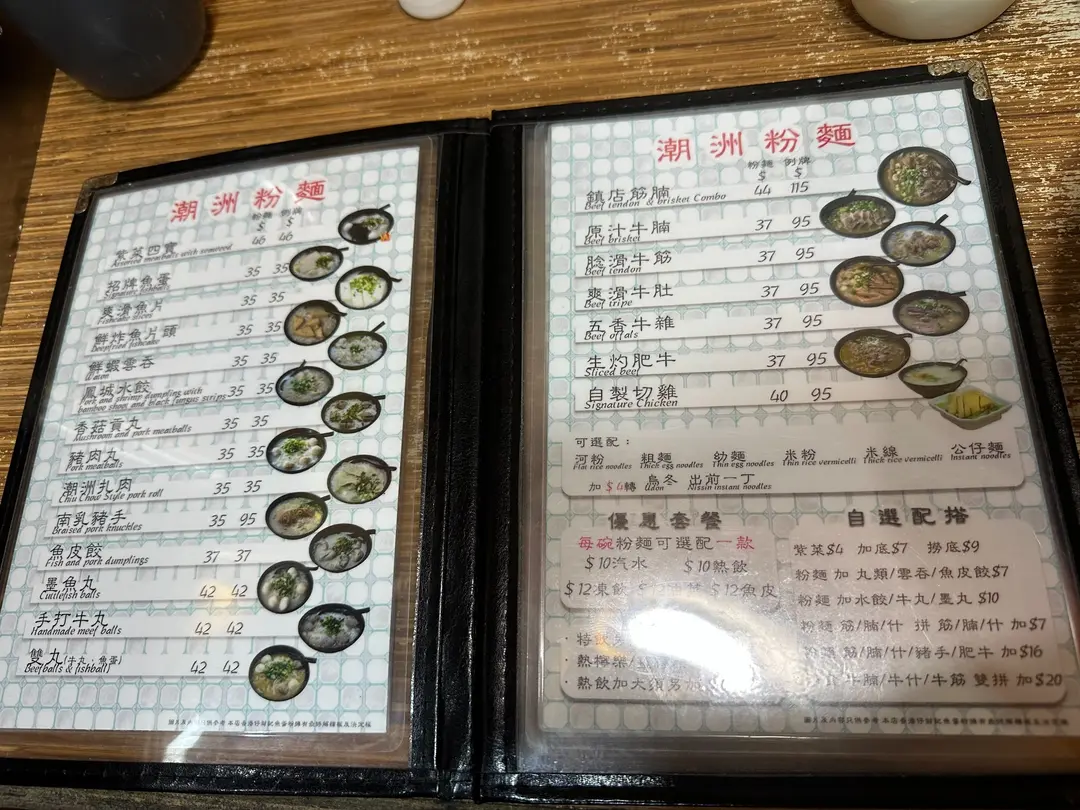 潮洲粉麵
粉麵 例牌
$ $
紫菜四寶 46 46
Assorted meatballs with seaweed
招牌魚蛋 35 35
爽滑魚片 35 35
鮮炸魚片頭 35 35
鮮蝦雲吞 35 35
鳳城水餃 35 35
Pork and shrimp dumpling with
bamboo shoot and black fungus strips
香菇貢丸 35 35
Mushroom and pork meatballs
豬肉丸 35 35
Pork meatballs
潮洲扎肉 35 35
Chiu Chow Style pork roll
南乳豬手 35 95
Braised pork knuckles
魚皮餃 37 37
Fish and pork dumplings
墨魚丸 42 42
Cuttlefish balls
手打牛丸 42 42
Handmade meef balls
雙丸(牛丸,魚蛋) 42 42
Beefballs & fishball)
潮洲粉麵
粉麵 例牌
$ $
鎮店筋腩 44 115
Beef tendon & brisket Combo
原汁牛腩 37 95
Beef brisket
腍滑牛筋 37 95
Beef tendon
爽滑牛肚 37 95
Beef tripe
五香牛雜 37 95
Beef offals
生灼肥牛 37 95
Sliced beef
自製切雞 40 95
Signature Chicken
可選配：
河粉 粗麵 幼麵 米粉 米線 公仔麵
Flat rice noodles Thick egg noodles Thin egg noodles Thin rice vermicelli Thick rice vermicelli Instant noodles
加$4轉 烏冬 出前一丁
Udon Nissin instant noodles
優惠套餐
每碗粉麵可選配一款
$10汽水 $10熱飲
$12凍飲 $12魚皮
特飲
熱檸樂/
熱飲加大須另加
自選配搭
紫菜$4 加底$7 撈底$9
粉麵 加 丸類/雲吞/魚皮餃$7
粉麵 加水餃/牛丸/墨丸 $10
粉麵 筋/腩/什 拼 筋/腩/什 加$7
筋/腩/什/豬手/肥牛 加$16
牛腩/牛什/牛筋 雙拼 加$20